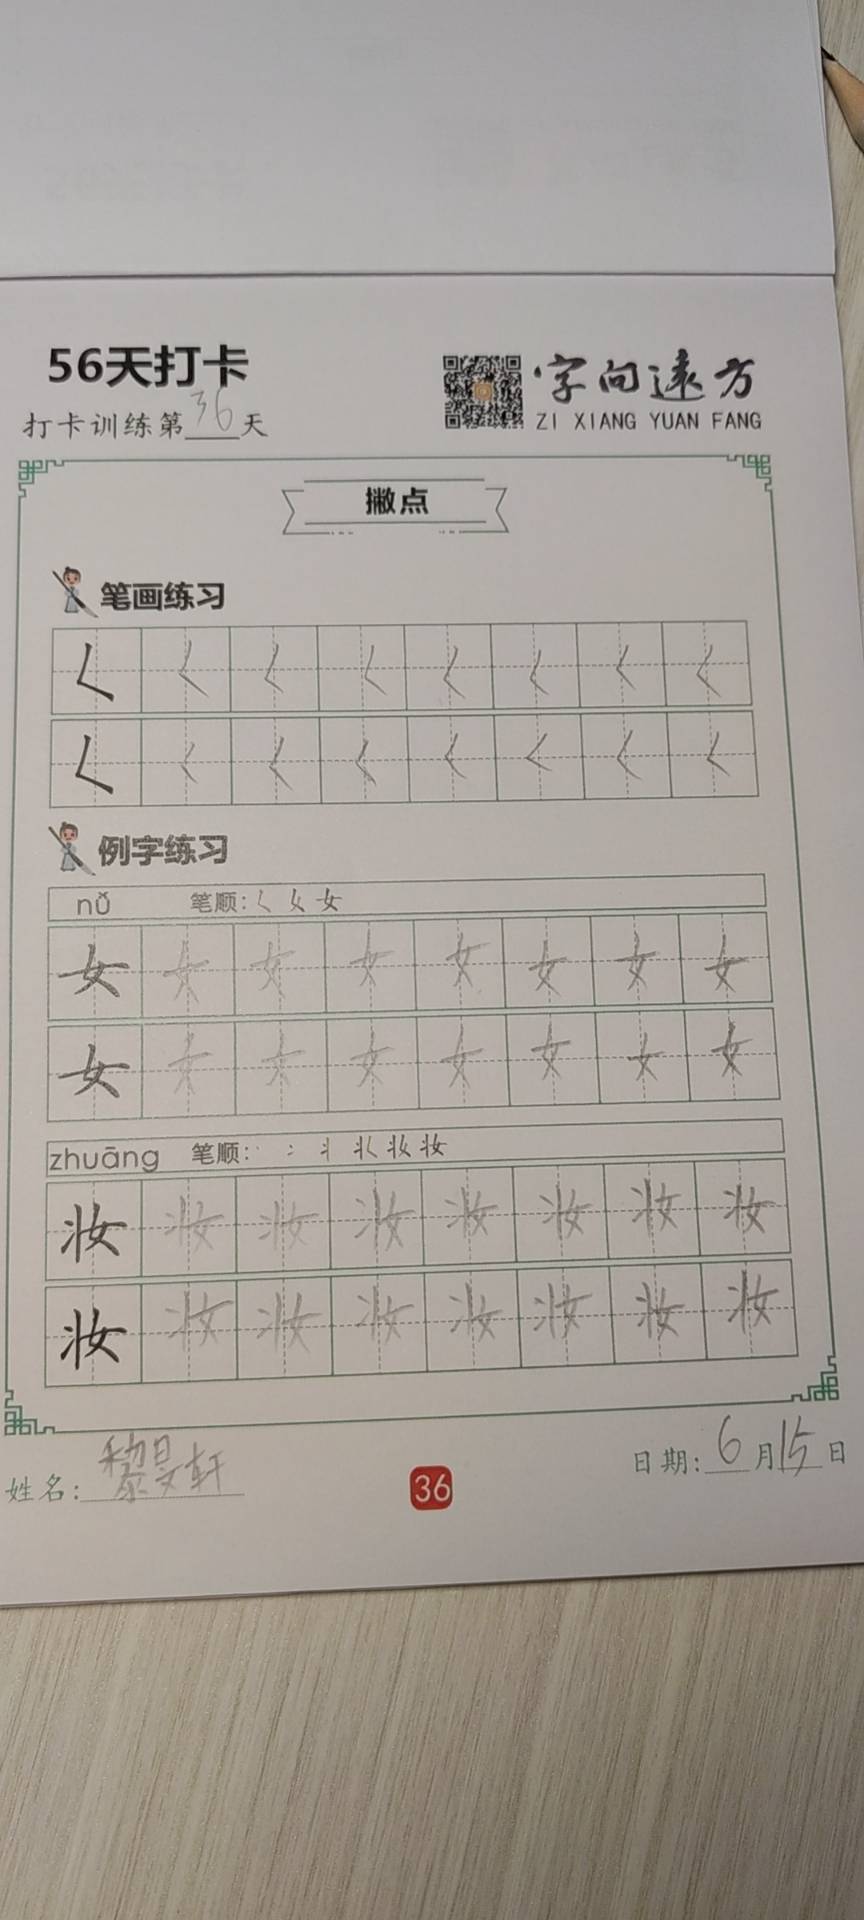 56天打卡
字向远方
ZI XIANG YUAN FANG
打卡训练第36天
撇点
笔画练习
𡿨 𡿨 𡿨 𡿨 𡿨 𡿨 𡿨 𡿨
𡿨 𡿨 𡿨 𡿨 𡿨 𡿨 𡿨 𡿨
例字练习
nǚ 笔顺: 𡿨 女 女
女 女 女 女 女 女 女 女
女 女 女 女 女 女 女 女
zhuāng 笔顺: 丶 冫 丬 妆 妆 妆
妆 妆 妆 妆 妆 妆 妆 妆
妆 妆 妆 妆 妆 妆 妆 妆
姓名: 黎昊轩
36
日期: 6月15日